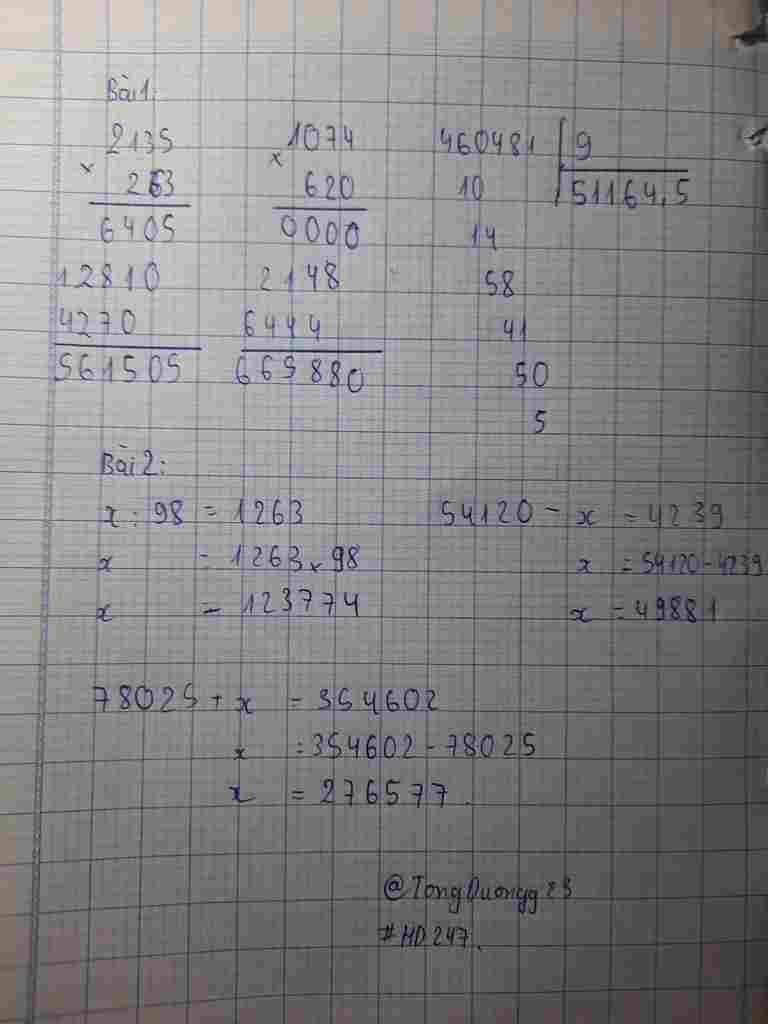 Bài 1:
2135
× 263
6405
12810
4270
561505
1074
× 620
0000
2148
6444
665880
460481 9
10 51164,5
14
58
41
50
5
Bài 2:
x : 98 = 1263
x = 1263 × 98
x = 123774
54120 - x = 4239
x = 54120 - 4239
x = 49881
78025 + x = 354602
x = 354602 - 78025
x = 276577.
@TongDuongg23
#HD247.